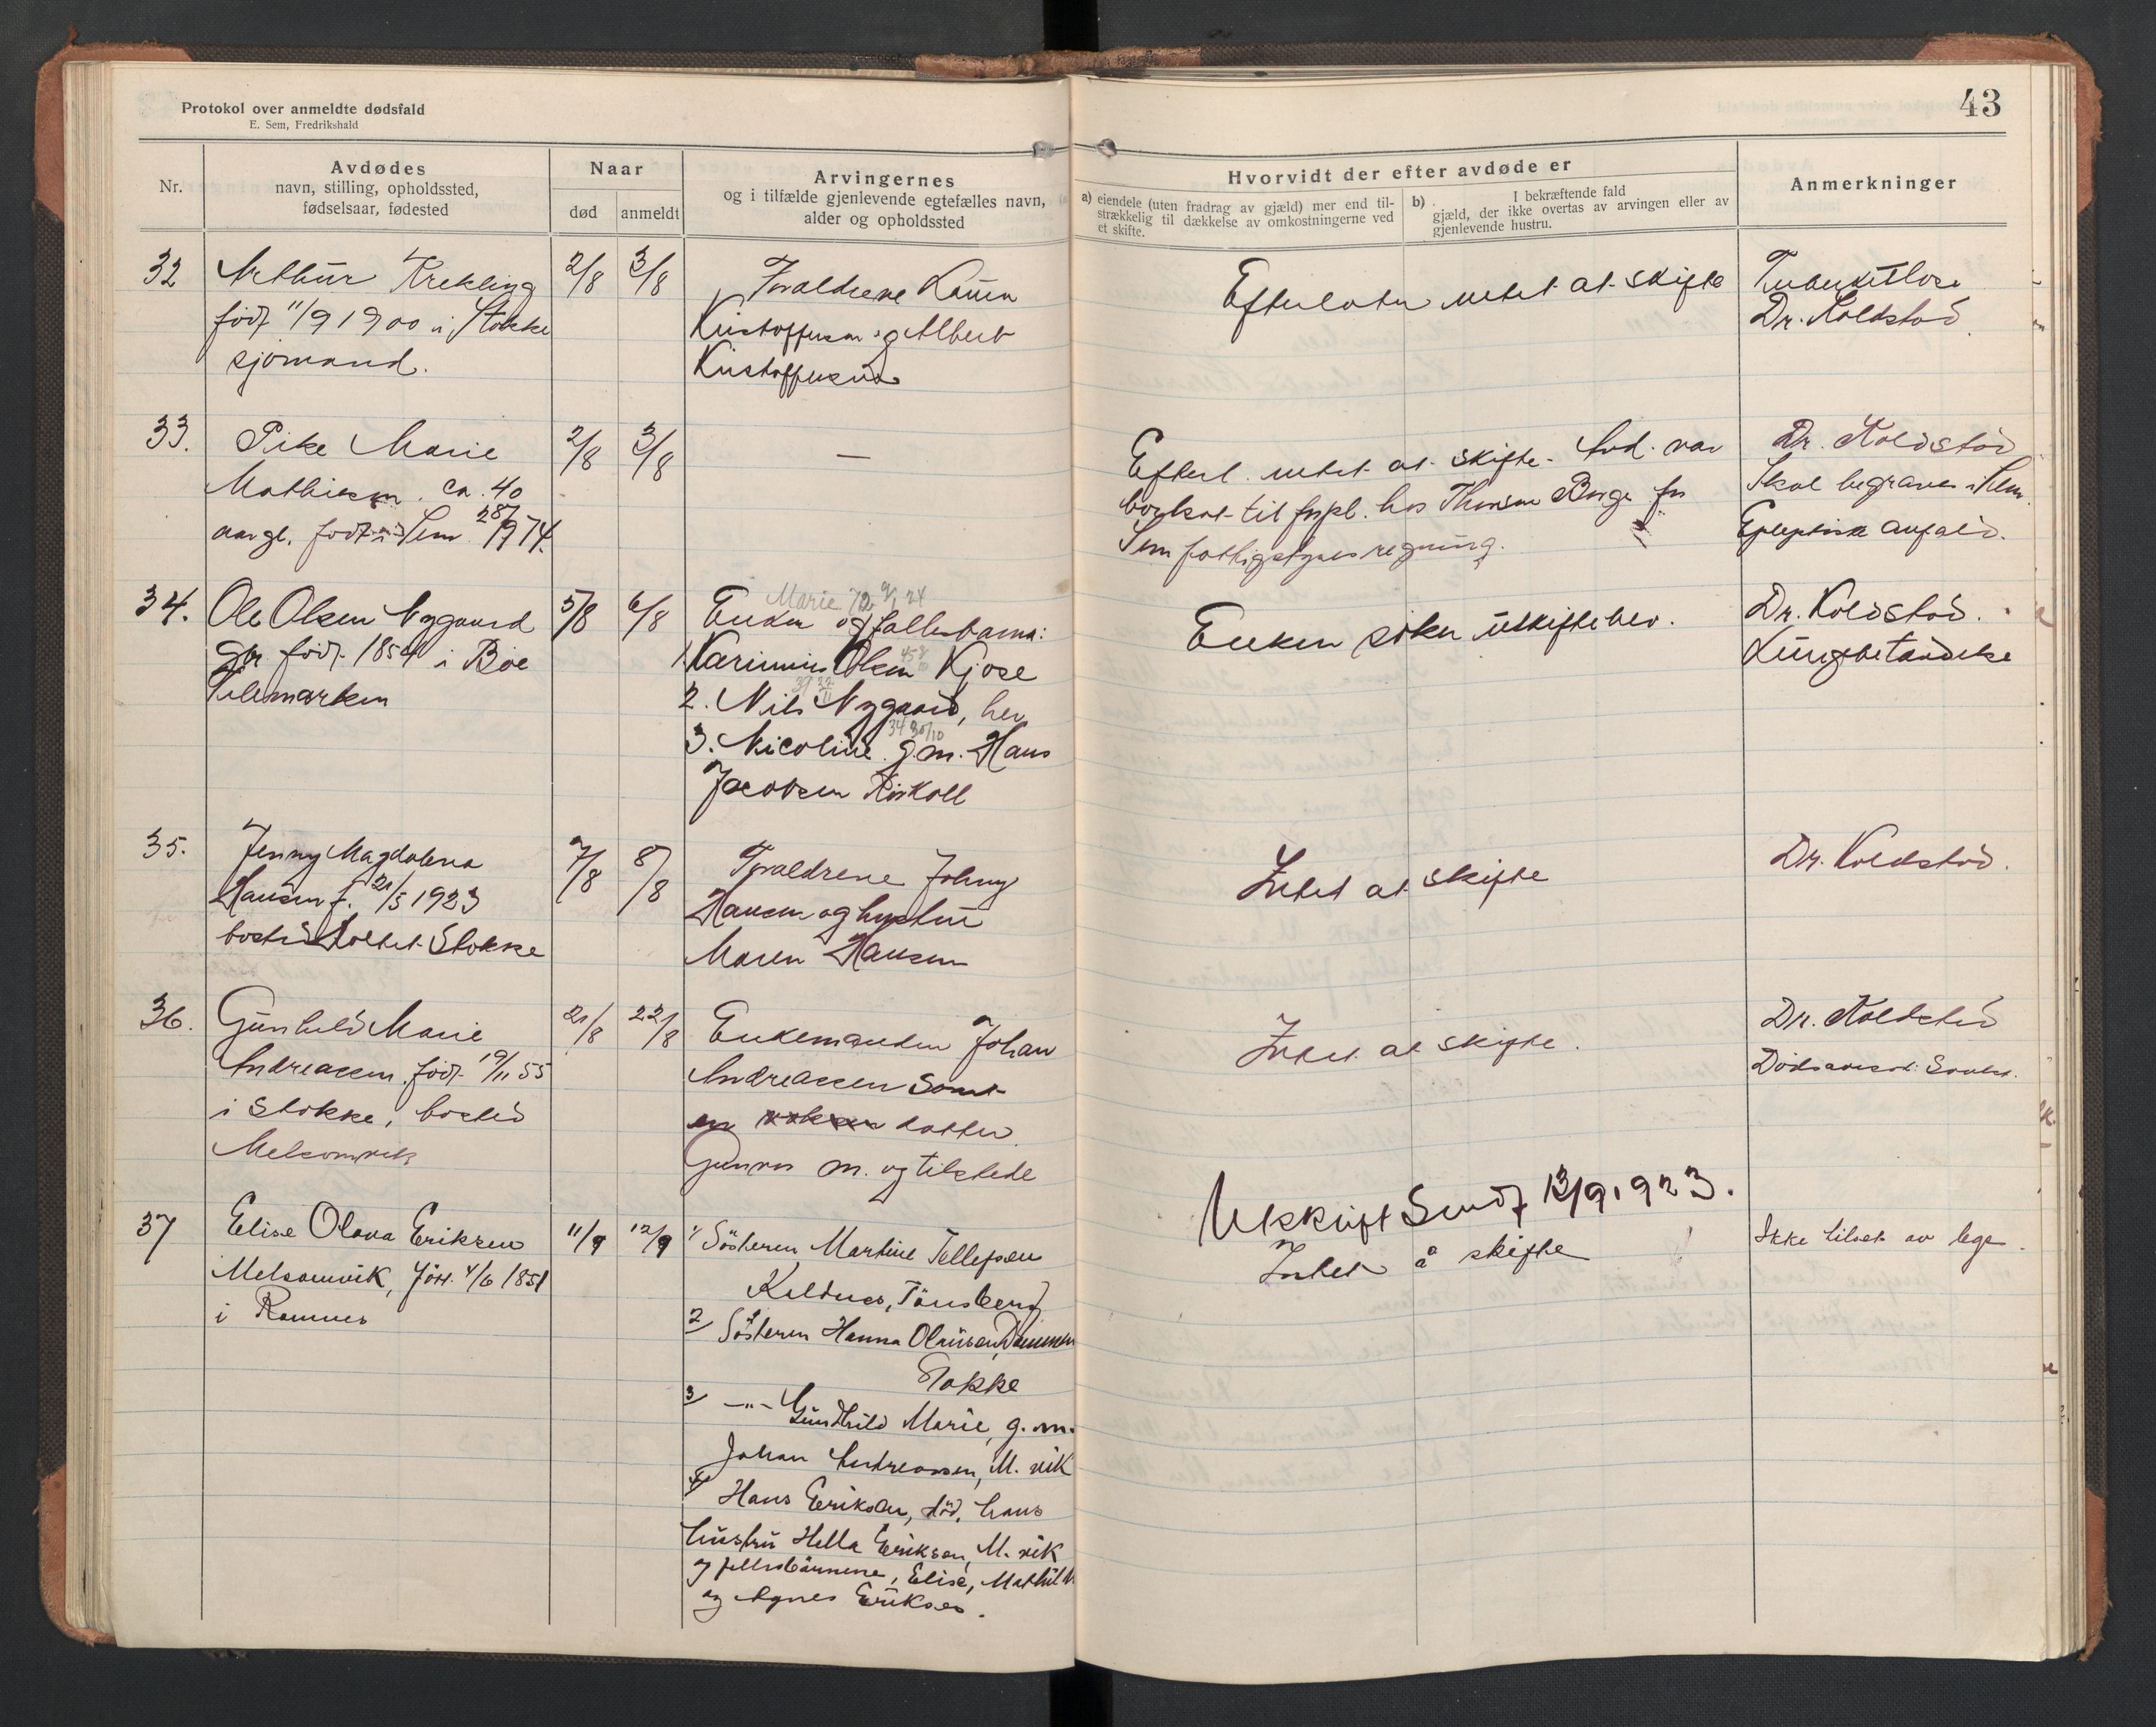 Protokol over anmeldte dødsfald
E. Sem, Fredrikshald
43
Nr.
Avdødes
navn, stilling, opholdssted,
fødselsaar, fødested
Naar
død
anmeldt
Arvingernes
og i tilfælde gjenlevende egtefælles navn,
alder og opholdssted
Hvorvidt der efter avdøde er
a) eiendele (uten fradrag av gjæld) mer end til-
strækkelig til dækkelse av omkostningerne ved
et skifte.
b) I bekræftende fald
gjæld, der ikke overtas av arvingen eller av
gjenlevende hustru.
Anmerkninger
32
Arthur Krekling
född 11/9 1900 i Stokke
sjömand.
2/8
3/8
Foraldrene
Kristoffersen og Albert
Kristoffersen
Efterlater intet at skifte
Tuberkulose
Dr. Koldstad
33.
Pike Marie
Mathisen. ca. 40
aar gl. född i Sem
2/8
3/8
—
Efterl. intet at skifte. Avd. var
bortsat til forpl. hos Thorsen Borge for
Sem fattigstyres regning.
Dr. Koldstad
Skal begraves i Sem
Epileptisk anfald.
34.
Ole Olsen Nygaard
gbr. född 1854 i Böe
Telemarken
5/8
6/8
Marie 72
Enken og fællesbarna:
1. Olsen Kjose
2. Nils Nygaard, her
3. Nicoline g.m. Hans
Jacobsen
Enken söker uskiftebev.
Dr. Koldstad.
Lungebetændelse
35.
Jenny Magdalena
Hansen f. 21/5 1923
bosted Stokke
7/8
8/8
Foraldrene Johny
Hansen og hustru
Maren Hansen
Intet at skifte
Dr. Koldstad.
36.
Gunhild Marie
Andreassen. född 19/11 55
i Stokke, bosted
Melsomvik
21/8
22/8
Enkemanden Johan
Andreassen samt
en datter
m. og tilstede
Intet at skifte.
Dr. Koldstad
37
Elise Olava Eriksen
Melsomvik, född 4/6 1851
i Ramnes
11/9
12/9
1/ Sösteren Martine Tellefsen
Kaldnes, Tönsberg
2/ Sösteren Hanna Olausen,
Stokke
3/ —"— Gundhild Marie, g.m.
Johan Andreassen, M. vik
4/ Hans Eriksen, död, hans
hustru Hella Eriksen, M. vik
og fellesbarnene, Elise, Mathilde
og Agnes Eriksen.
Utskrift Sendt 13/9 1923.
Intet å skifte
Ikke tilset av lege.